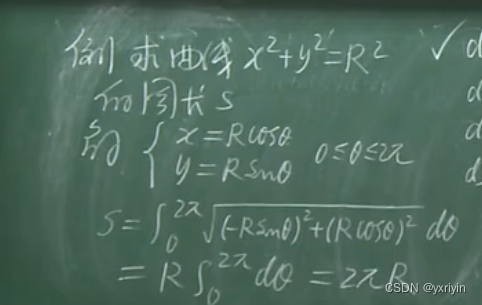 例 求曲线 x²+y²=R² ✓ d
的周长 S d
解 { x=Rcosθ
y=Rsinθ 0≤θ≤2π d
S=∫₀^{2π} √((-Rsinθ)²+(Rcosθ)²) dθ
=R∫₀^{2π} dθ = 2πR
CSDN @yxriyin